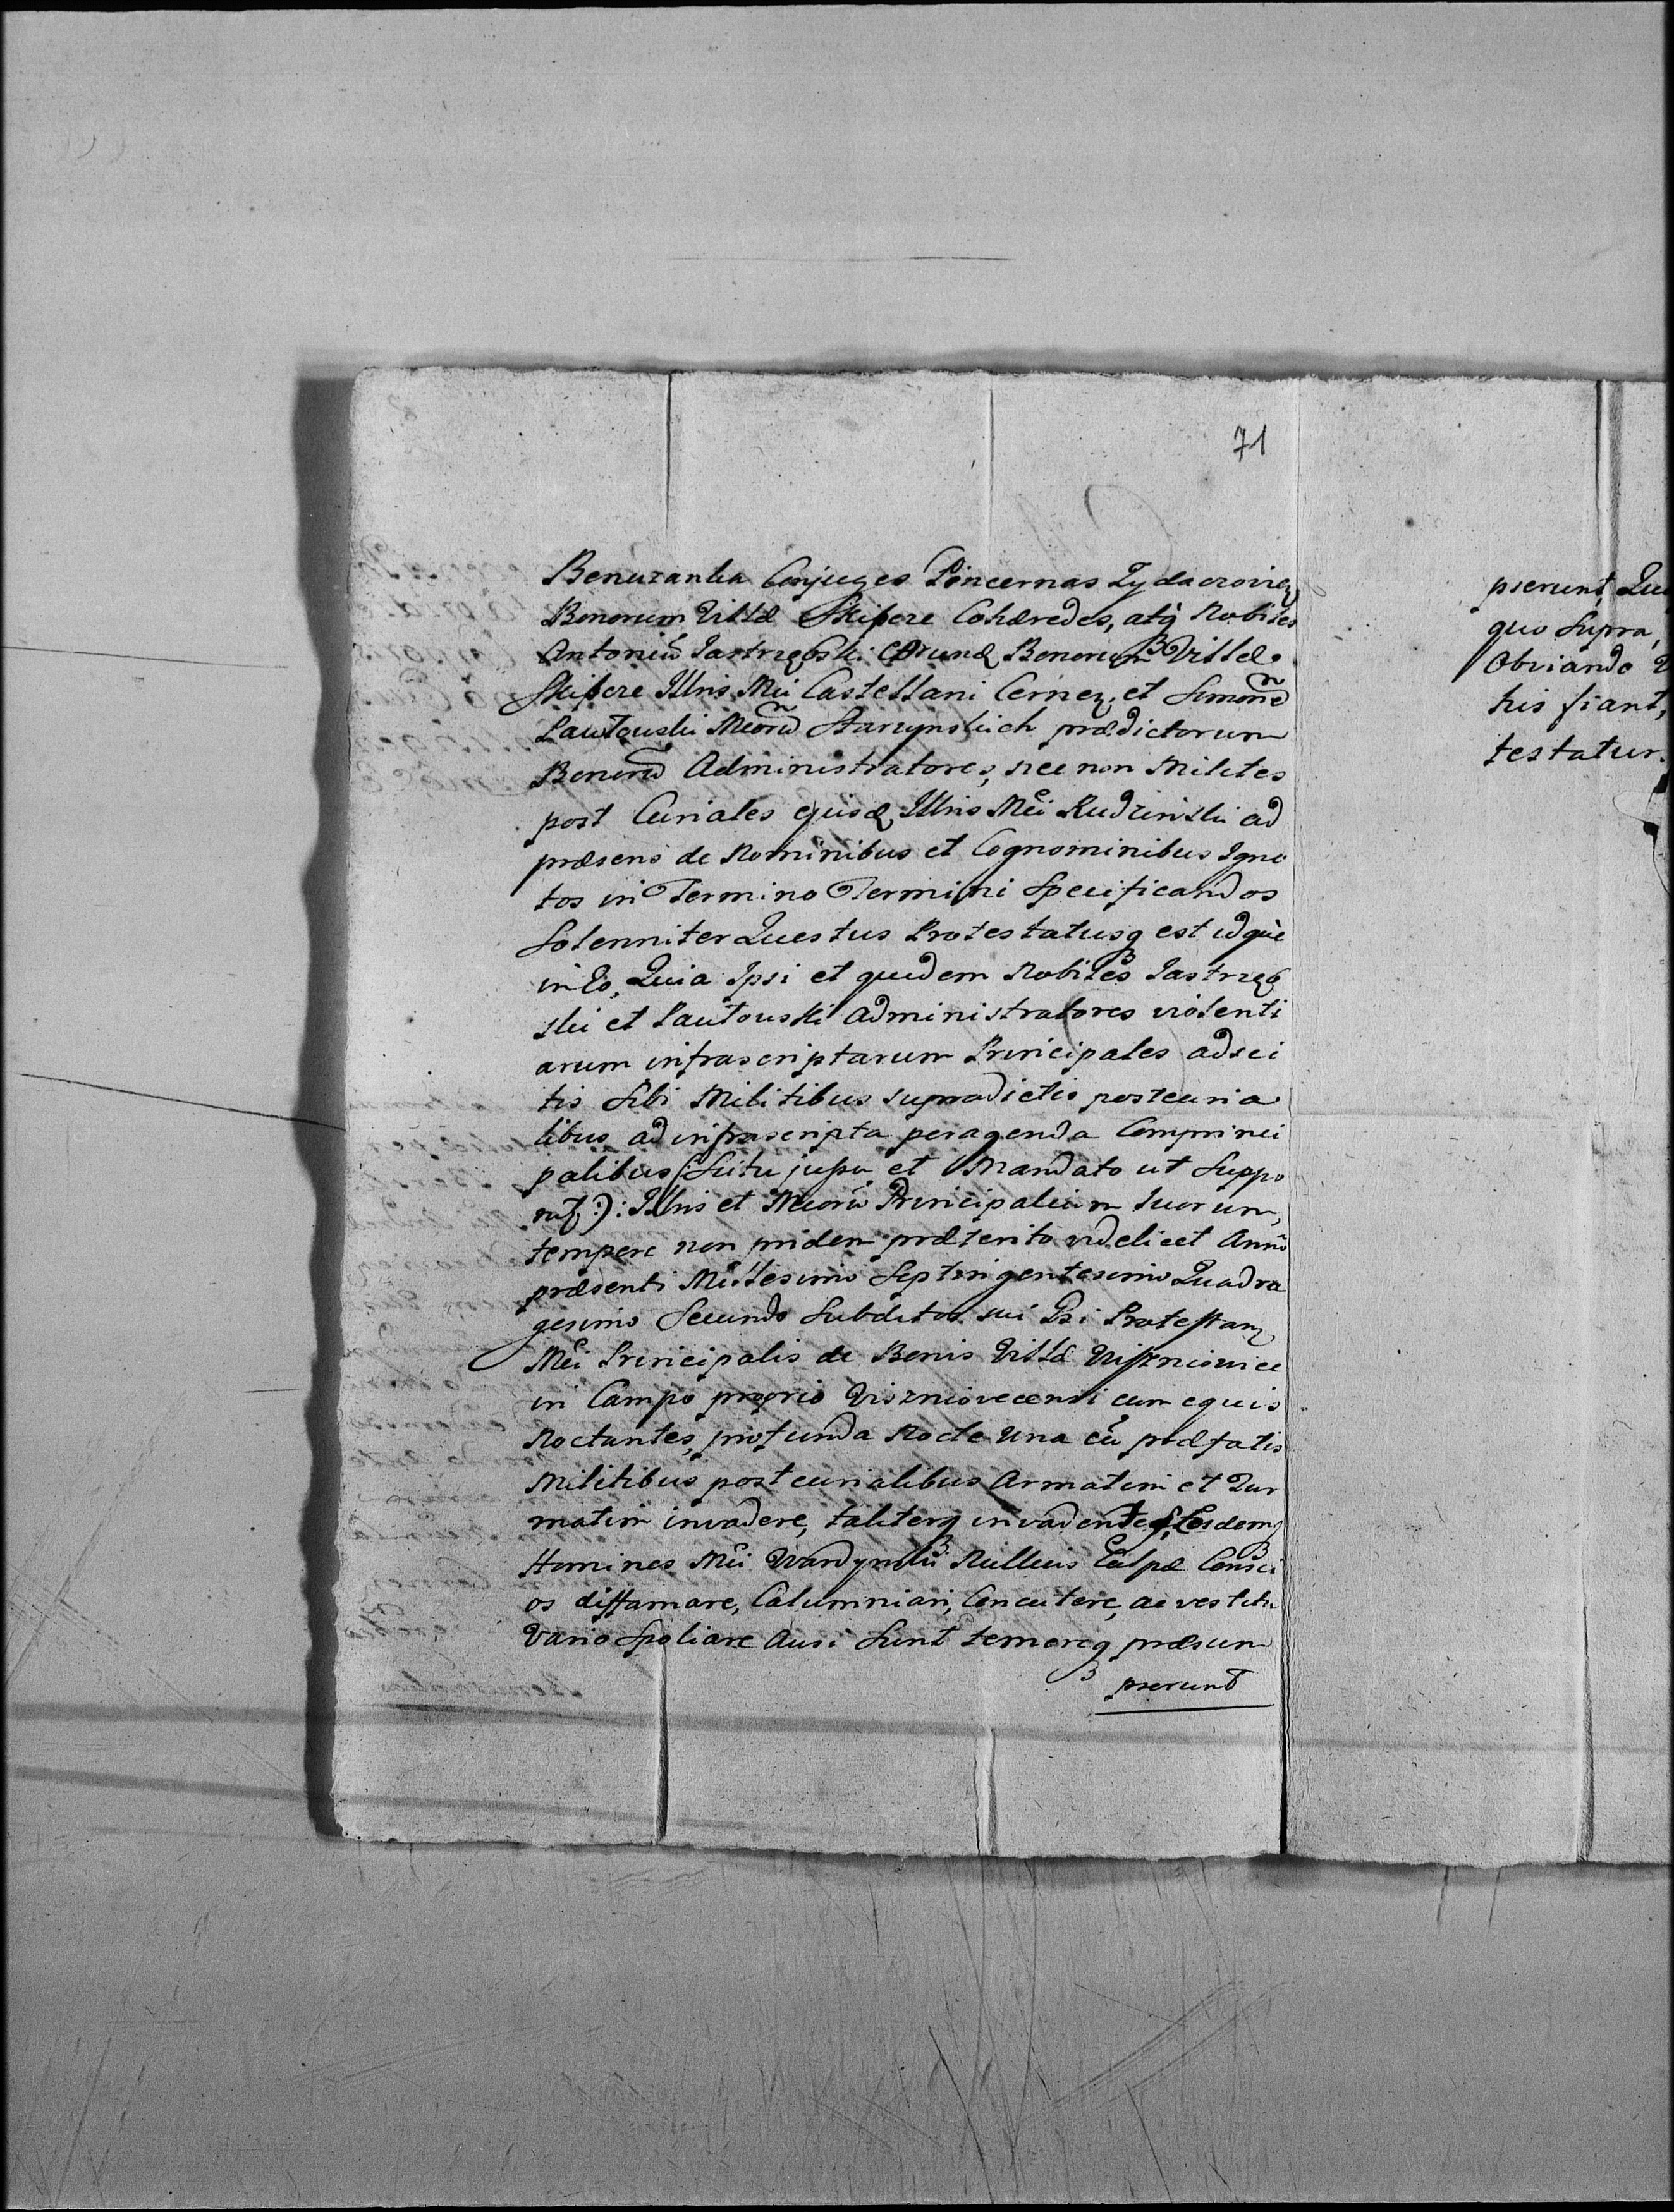 71
Benuzanka Conjuges Pincernas Zydaczovien
Bonorum Villæ Skipcze Cohæredes, atq Nobiles
Antoniũ Jastrzębski eorundẽ Bonorum Villæ
Skipcze Illris Mci Castellani Cernen, et Simonẽ
Pautouski Mcorũ Starzynskich prædictorum
Bonorũ Administratores, nec non Milites
post Curiales ejusd, Illris Mci Rudzinski ad
præsens de Nominibus et Cognominibus Igno
tos in Termino Termini Specificandos
Solenniter Questus Protestatusq est idquè
in Eo, Quia Ipsi et quidem Nobiles Jastrzęb
ski et Pautouski Administratores violenti
arum infrascriptarum Principales adsci
tis Sibi Militibus supradictis postcuria
libus ad infrascripta peragenda Comprinci
palibus (: Scitu jussu et Mandato ut Suppo
nit :) Illris et Mcorũ Principalium Suorum,
tempore non pridem præterito videlicet Anno
præsenti Millesimo Septingentesimo Quadra
gesimo Secundo Subditos sui Psi Protestan,
Mci Principalis de Bonis Villæ Wiszniowice
in Campo proprio Viszniovecensi cum equis
Noctantes, profunda Nocte una cũ præfatis
Militibus postcurialibus Armatim et Tur
matim invadere, taliterq invadentes, Eosdemq
Homines Mci Wardynski Nullius Culpæ Consci
os diffamare, Calumniari, Concutere, ac vestitu
Vario Spoliare Ausi Sunt temereq præsum
pserunt
pserunt,
quo Supra,
Obviando
his fiant,
testatur.